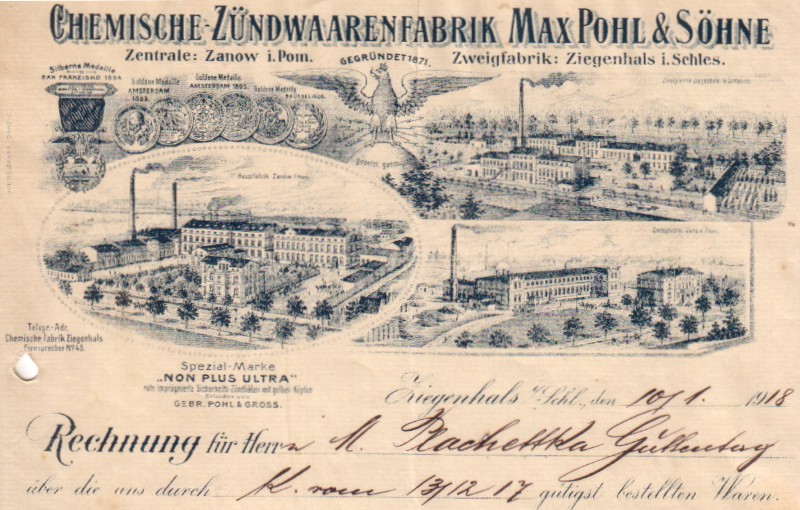 CHEMISCHE-ZÜNDWAARENFABRIK MAX POHL & SÖHNE
Zentrale: Zanow i. Pom.
GEGRÜNDET 1871.
Zweigfabrik: Ziegenhals i. Schles.
Silberne Medaille
SAN FRANZISKO 1894
Goldene Medaille
AMSTERDAM
Goldene Medaille
AMSTERDAM 1895.
Goldene Medaille
Hauptfabrik Zanow i. Pom.
Zweigfabrik Zanow i. Pom.
Telegr.-Adr.
Chemische Fabrik Ziegenhals
Fernsprecher No 45.
Spezial-Marke
„NON PLUS ULTRA"
rote imprägnierte Sicherheits-Zündhölzer mit gelben Köpfen
Erfunden von
GEBR. POHL & GROSS.
Ziegenhals i/Schl., den 10/1. 1918
Rechnung für Herrn M. Plachettka Guttentag
über die uns durch K. vom 13/12 17 gütigst bestellten Waren.